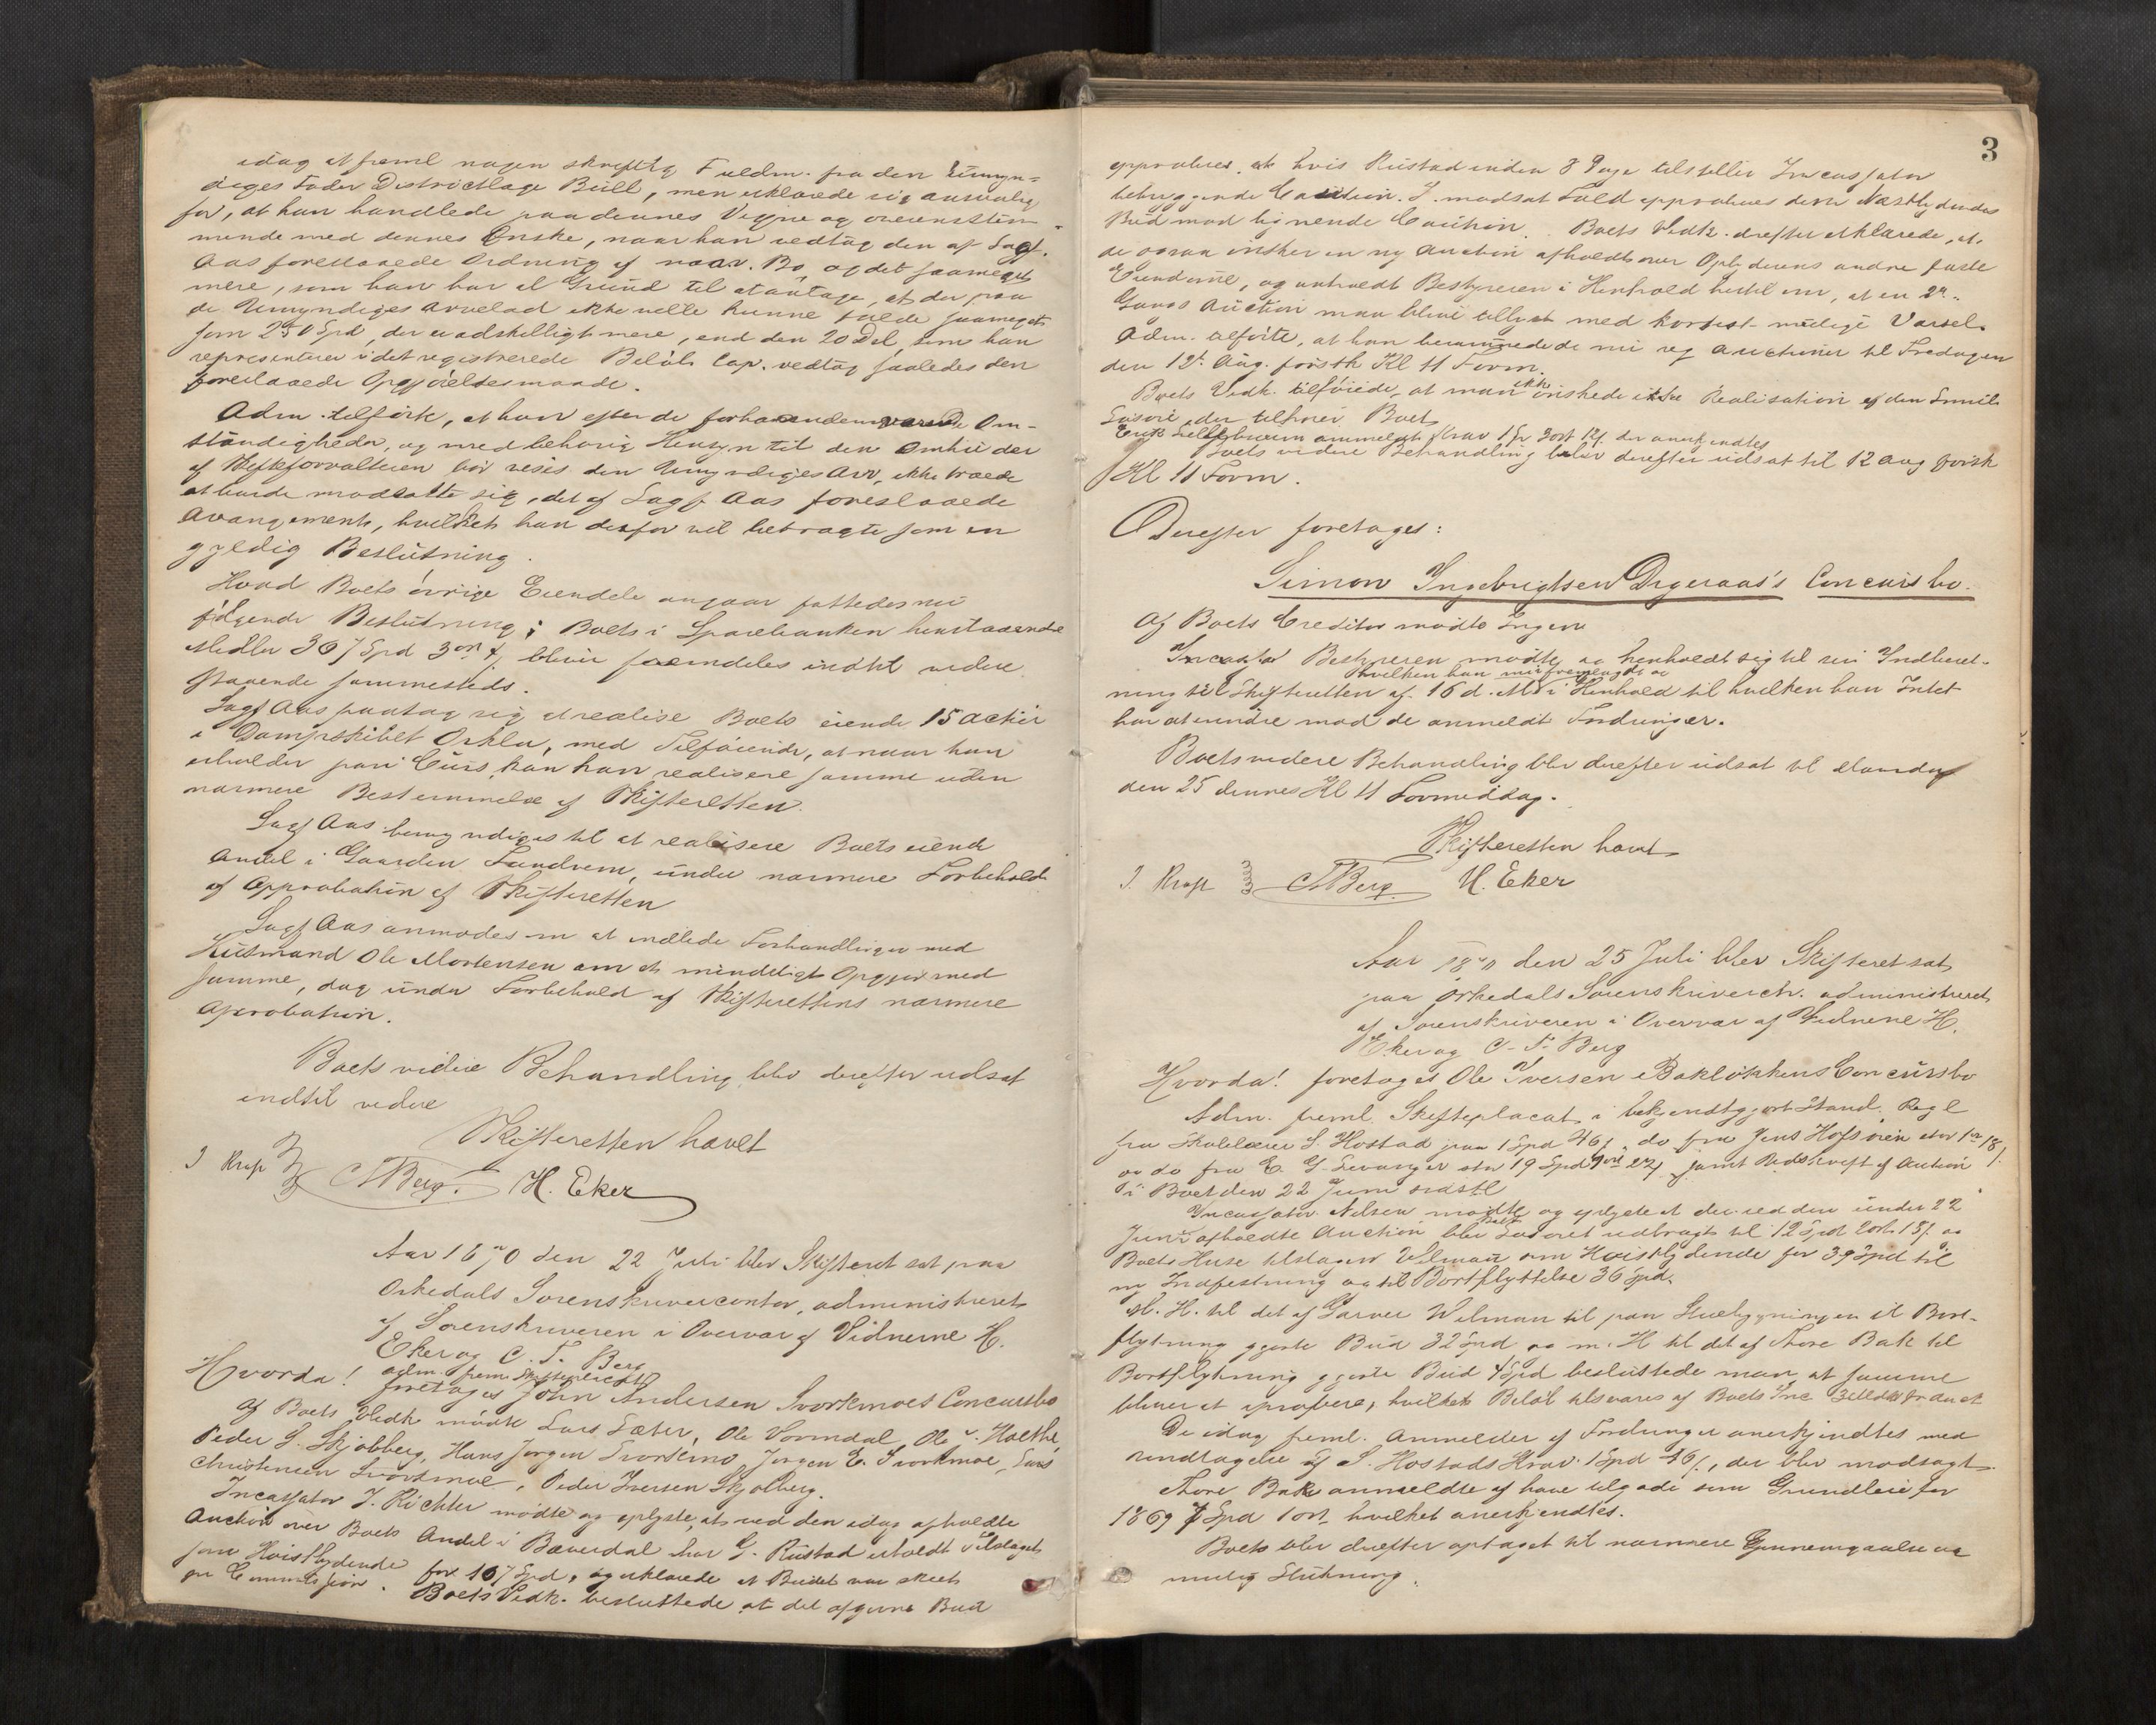 idag at freml nogen skriftlig Fuldm. fra den Umyn-
diges Fader Districtlæge Bull, men erklærede sig ansvarlig
for, at han handlede paa dennes Vegne og overensstem
mende med dennes Ønske, naar han vedtog den af Sagf.
Aas foreslaaede Ordning af nærv. Bo, og det saameget
mere, som han har al Grund til at antage, at der paa
de Umyndiges Arvelod ikke vilde kunne falde saameget
som 250 Spd, der er adskilligt mere, end den 20 Del, som han
repræsenterer i det registrerede Beløb. Cap. vedtog saaledes den
foreslaaede Opgjørelsesmaade.
Adm. tilførte, at han efter de forhaandenværende Om-
stændigheder, og med behørig Hensyn til den Omhu der
af Skifteforvalteren bør vises den Umyndiges Arv, ikke troede
at burde modsætte sig, det af Sagf Aas foreslaaede
Arangement, hvilket han derfor vil betragte som en
gyldig Beslutning.
Hvad Boets øvrige Eiendele angaar fattedes nu
følgende Beslutning; Boets i Sparebanken henstaaende
Midler 367 Spd 3 ort bliver fremdeles indtil videre
staaende sammesteds.
Sagf Aas paatog sig at realise Boets eiende 15 Actier
i Dampskibet Orkla, med Tilføiende, at naar han
erholder pari Curs, kan han realisere samme uden
nærmere Bestemmelse af Skifteretten.
Sagf Aas bemyndiges til at realisere Boets eiend
Andel i Gaarden Landrem, under nærmere Forbehold
af Approbation af Skifteretten
Sagf Aas anmodes om at indlede Forhandlinger med
Husmand Ole Mortensen om et mindeligt Opgjør med
samme, dog under Forbehold af Skifterettens nærmere
Aprobation.
Boets videre Behandling blev derefter udsat
indtil videre
Skifteretten hævet
J Krop CTBerg. H. Eker
Aar 1870 den 22 Juli blev Skifteret sat paa
Orkedals Sorenskrivercontor, administreret
af Sorenskriveren i Overvær af Vidnerne H.
Eker og C. T. Berg
Hvorda! adm frem Skifteplacat
foretages John Andersen Svorkmoes Concursbo
Af Boets Vedk mødte Lars Sæter, Ole Vormdal, Ole Hoelthe,
Peder S. Skjølberg, Hans Jørgen Svorkmo Jørgen E. Svorkmoe, Lars
Christensen Svorkmoe, Peder Iversen Skjølberg.
Incassator J. Richter mødte og oplyste, at ved den idag afholdte
Auction over Boets Andel i Bæverdal har G. Rustad erholdt Tilslaget
som Høistbydende for 107 Spd, og erklærede at Budet var skeet
pr Commission. Boets Vedk. besluttede at det afgivne Bud
3
approberes, at hvis Rustad inden 8 Dage tilstiller Incassator
betryggende Caution. I modsat Fald approberes dem Næstbydendes
Bud mod lignende Caution. Boets Vedk. drefter erklærede, at
de ogsaa ønsker en ny Auction afholdt over Opbyderens andre faste
Eiendome, og anholdt Bestyreren i Henhold hertil om, at en 2n.
Gangs Auction maa blive tillyst med kortest mulige Varsel.
Adm. tilførte, at han berammede nu ny Auctioner til Fredagen
den 12t Aug. førstk Kl 11 Form.
Boets Vedk. tilføiede, at man ikke ønskede Realisation af den
der tilhører Boet
anmeldt Krav 1 Sp 3 ort 12 s. der anerkjendtes
Boets videre Behandling blev derefter udsat til 12 Aug førstk
Kl 11 Form.
Derefter foretages:
Simon Ingebrigtsen Drgeraas's Concursbo.
Af Boets Creditor mødte Ingen
Bestyreren mødte og henholdt sig til sin Indberet-
hvilken han nu fremlagde og
ning til Skifteretten af 16 d. Md i Henhold til hvilken han Intet
har at erindre mod de anmeldte Fordringer.
Boets videre Behandling blev derefter udsat til Mandag
den 25 dennes Kl 11 Formiddag.
Skifteretten hævet
J. Krop CTBerg. H. Eker
Aar 1870 den 25 Juli blev Skifteret sat
paa Orkedals Sorenskriverctr. administreret
af Sorenskriveren i Overvær af Vidnerne H.
Eker og C. T. Berg
Hvorda! foretoges Ole Iversen Bakløkkens Concursbo
Adm. freml. Skifteplacat i bekjendtgjort Stand. Regl
fra Skolelærer S. Hostad paa 1 Spd 46 s, do fra Jens Hofsøien stor 18 s.
og do fra E. G. Levanger stor 19 Spd samt Udskrift af Auction
i Boet den 22 Juni sidstl
Incassator Nelsen mødte og oplyste at der ved den under 22
Juni afholdte Auction blev Løsøret udbragt til 12 Spd 2 ort 15 s. og
Boets Huse tilslagen Velman som Høistbydende for 39 Spd til
ny Indfæstning og til Bortflyttelse 36 Spd.
M. H. til det af Garver Welman til paa Stuebygningen til Bort-
flytning gjorte Bud 32 Spd og m. H til det af Thore Bak til
Bortflytning gjorte Bud 4 Spd besluttede man, at samme
bliver at aprobere, hvilket Beløb tilsvares af Boets Inc
De idag freml. Anmelder af Fordringer anerkjendtes med
Undtagelse af S. Hostads Krav 1 Spd 46 s., der blev modsagt.
Thore Bak anmeldte at have tilgode som Grundleie for
1869 7 Spd 1 ort hvilket anerkjendtes.
Boet blev drefter optaget til nærmere Gjennemgaaelse og
mulig Slutning.